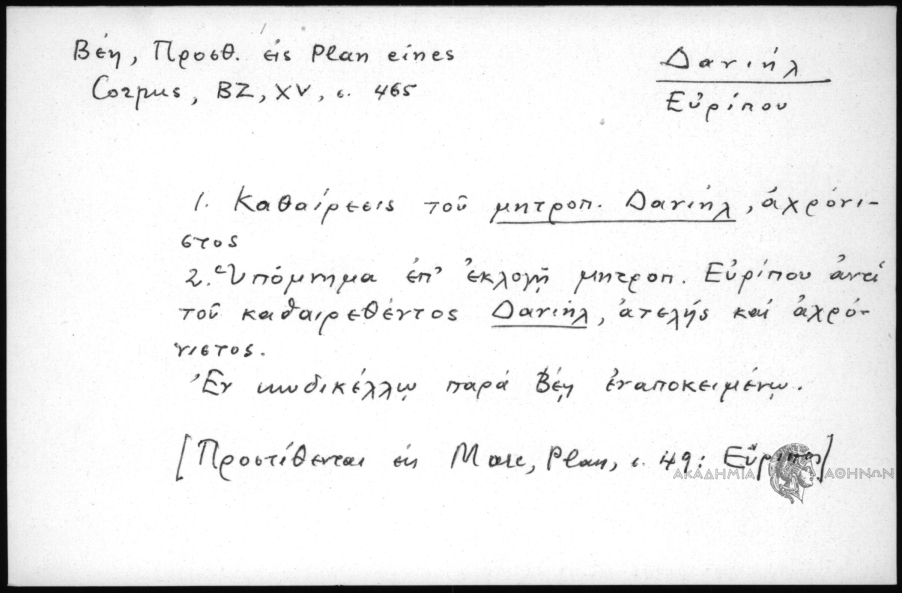 Βέη, Προσθ. εἰς Plan eines
Corpus, BZ, XV, σ. 465
Δανιήλ
Εὐρίπου
1. Καθαίρεσις τοῦ μητροπ. Δανιήλ, ἀχρόνι-
στος
2. Ὑπόμνημα ἐπ' ἐκλογῇ μητροπ. Εὐρίπου ἀντί
τοῦ καθαιρεθέντος Δανιήλ, ἀτελής καί ἀχρό-
νιστος.
Ἐν κωδικέλλῳ παρά Βέῃ ἐναποκειμένῳ.
[Προστίθενται εἰς Marc, Plan, σ. 49: Εὔριπος]
ΑΚΑΔΗΜΙΑ ΑΘΗΝΩΝ